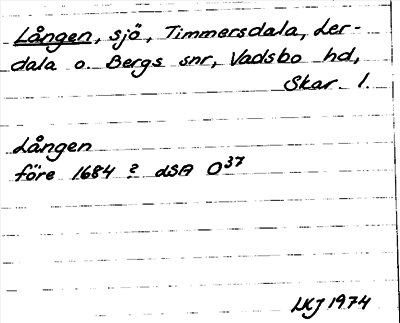 Lången, sjö, Timmersdala, Ler-
dala o. Bergs snr, Vadsbo hd,
Skar. l.
Lången
före 1684 ? dSA O37
LKJ 1974